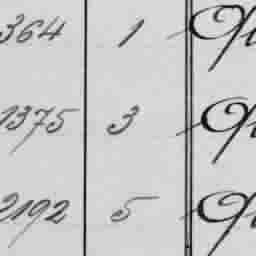 364 1
1375 3
2192 5